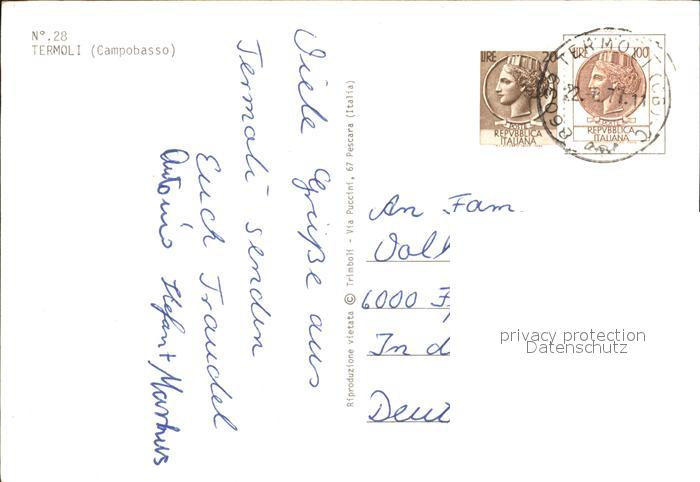 N°.28
TERMOLI (Campobasso)
Viele Grüße aus
Termoli senden
Euch Traudel
Antonio Stefan + Markus
Riproduzione vietata © Trimboli - Via Puccini, 67 Pescara (Italia)
LIRE 20
POSTE
REPVBBLICA
ITALIANA
LIRE 100
POSTE
REPVBBLICA
ITALIANA
86039 TERMOLI (CB)
77.11
An Fam.
6000
In d
privacy protection
Datenschutz